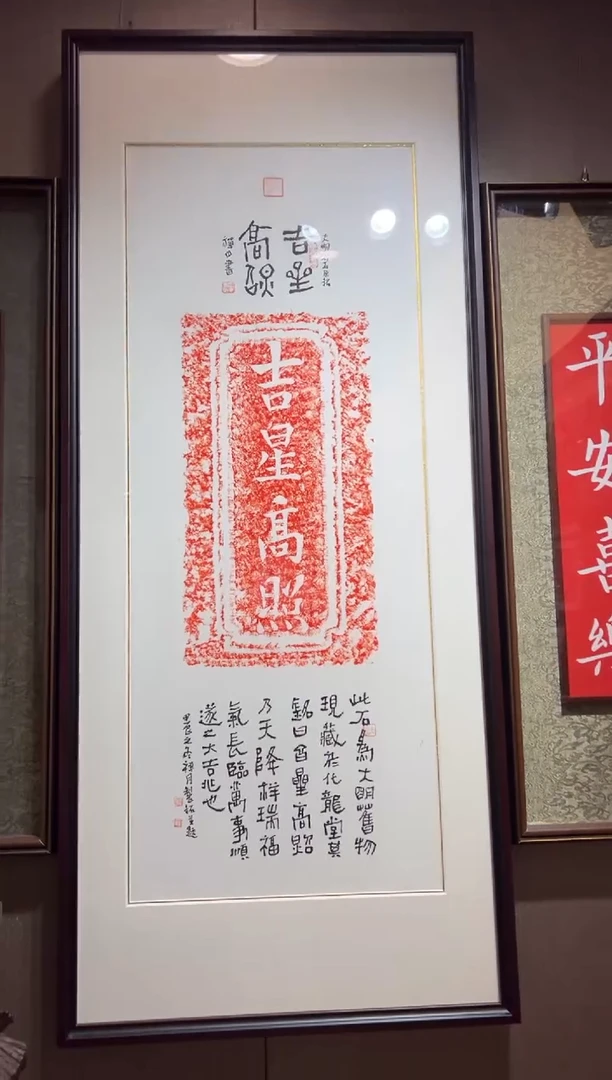 吉星
高照
吉星高照
此石為大明舊物
現藏於化龍堂其
銘曰吉星高照
乃天降祥瑞福
氣長臨萬事順
遂之大吉兆也
甲辰之冬
平安喜樂